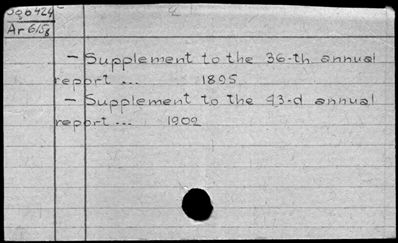 Ar 615g
— Supplement to the 36-th annual
report ... 1895
— Supplement to the 43-d annual
report ... 1902